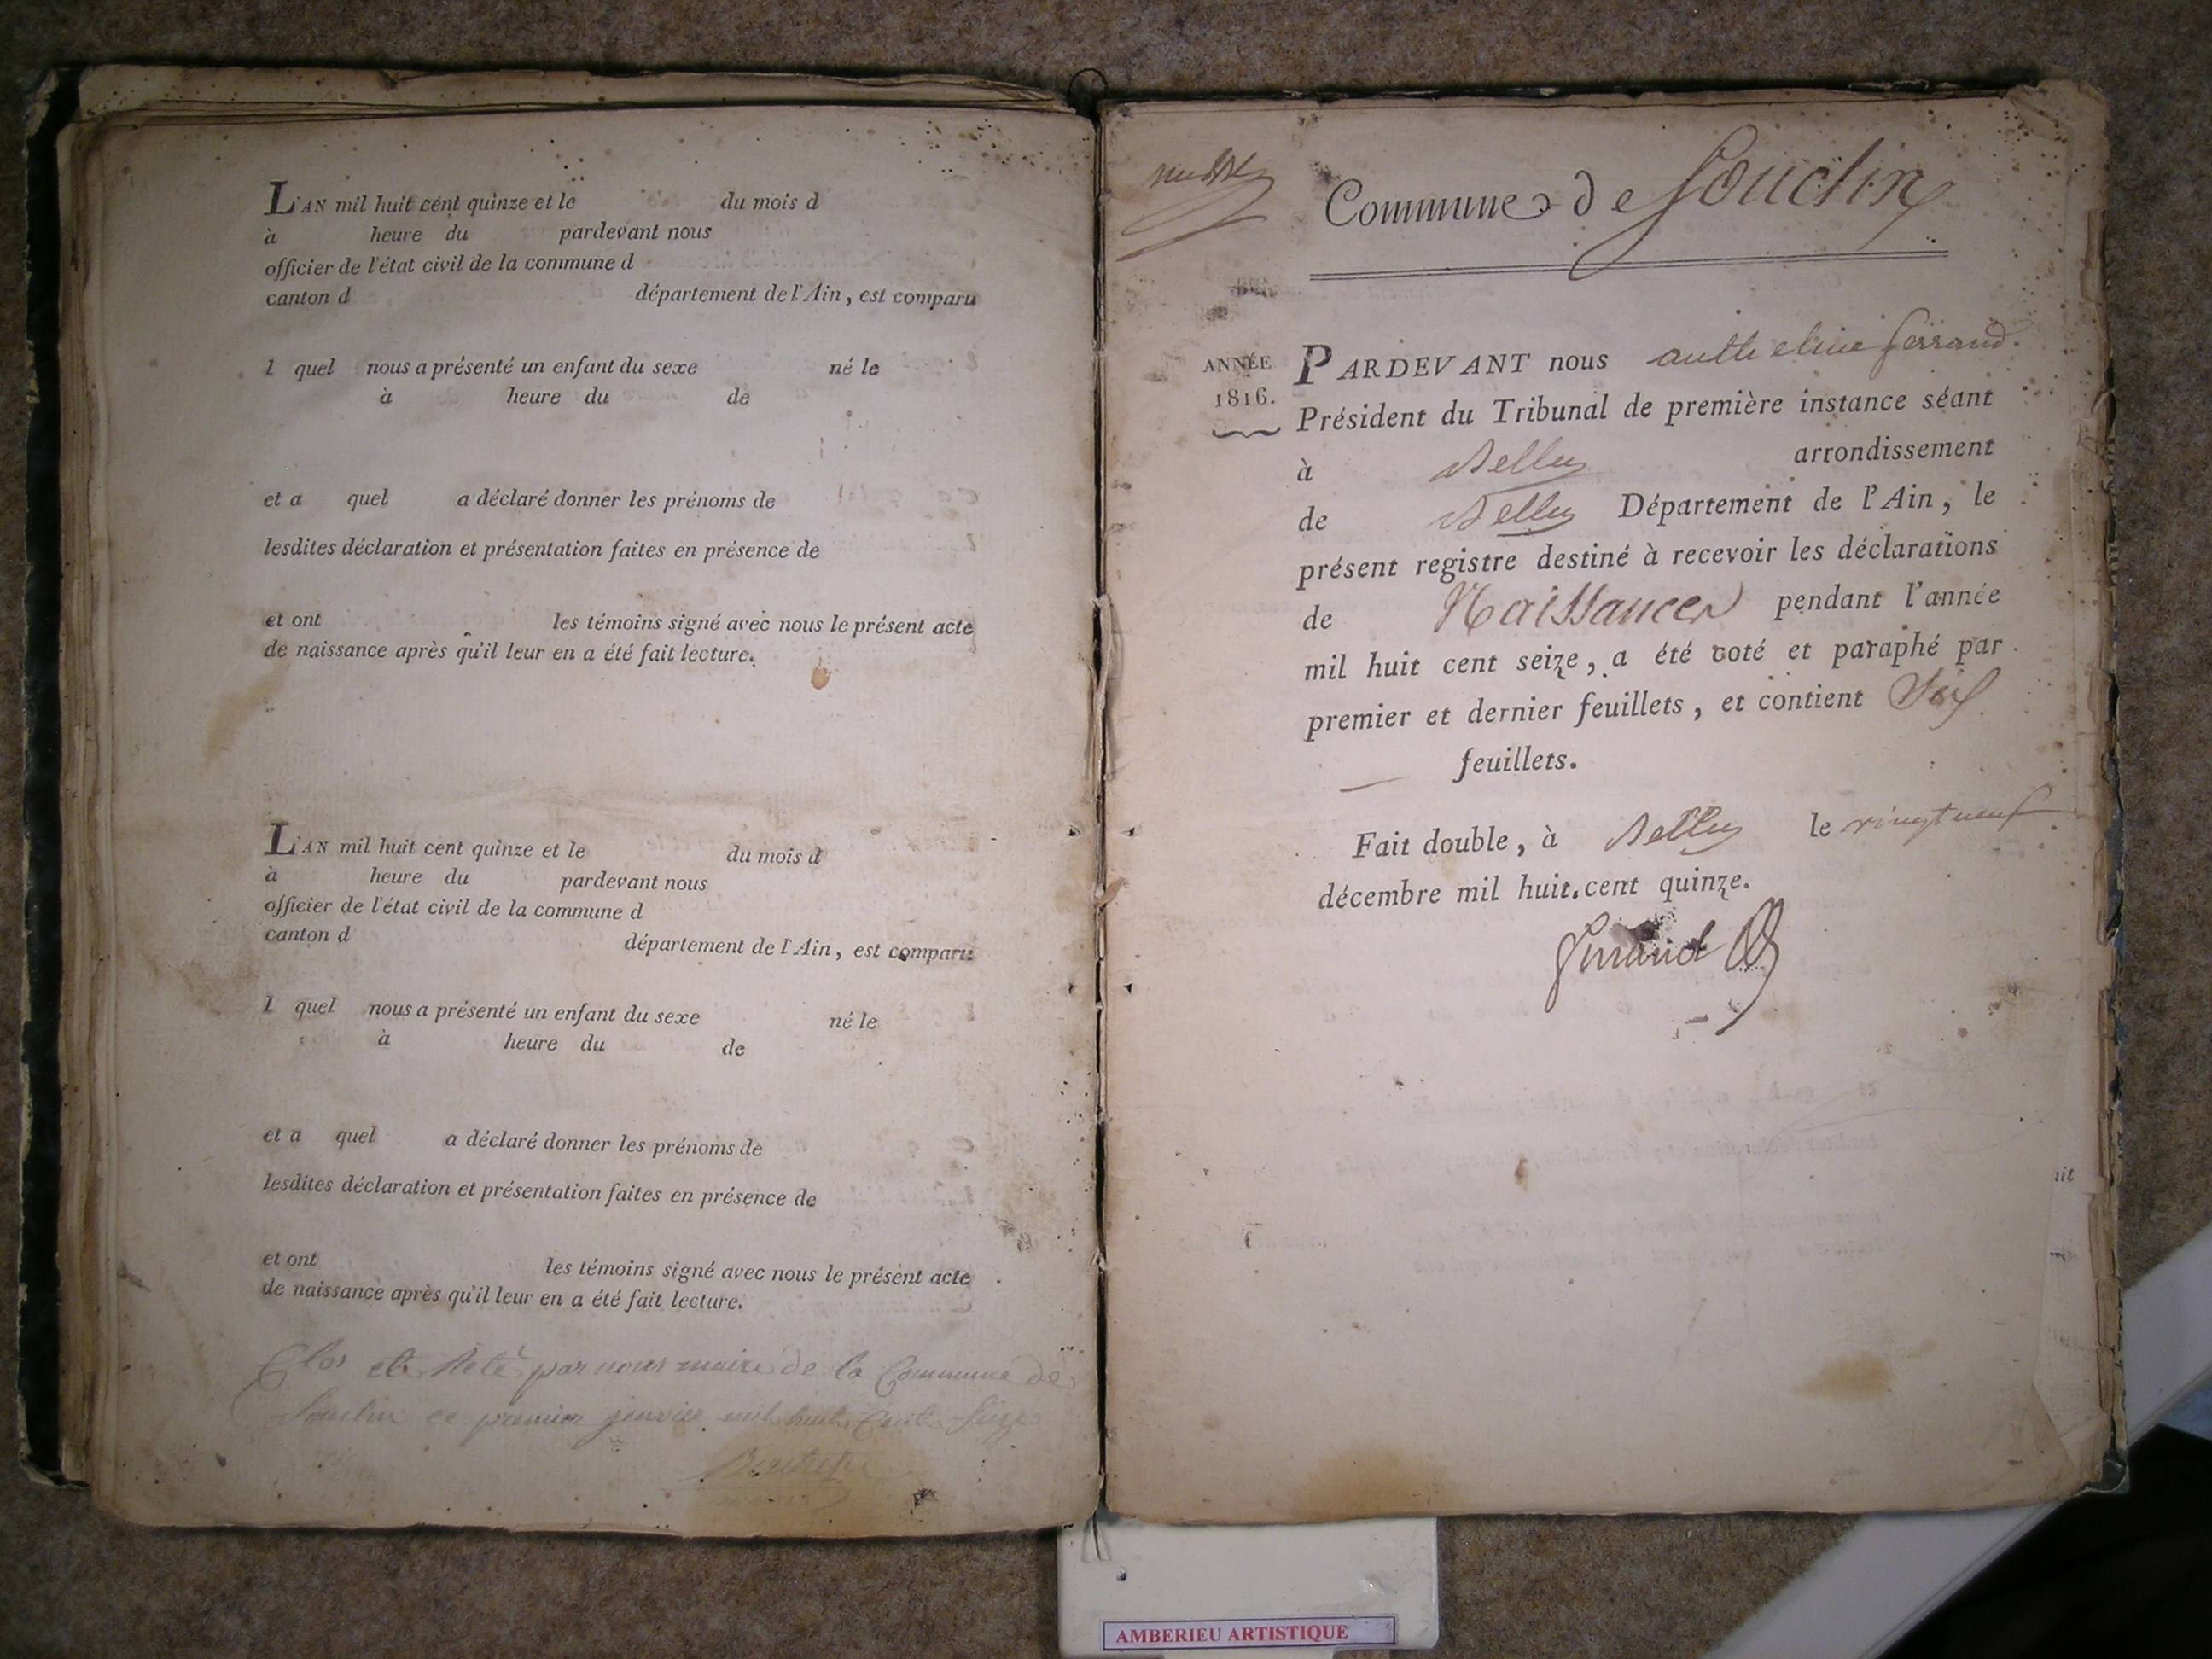 L'AN mil huit cent quinze et le du mois d
à heure du pardevant nous
officier de l'état civil de la commune d
canton d département de l'Ain, est comparu
l quel nous a présenté un enfant du sexe né le
à heure du de
et a quel a déclaré donner les prénoms de
lesdites déclaration et présentation faites en présence de
et ont les témoins signé avec nous le présent acte
de naissance après qu'il leur en a été fait lecture.
L'AN mil huit cent quinze et le du mois d
à heure du pardevant nous
officier de l'état civil de la commune d
canton d département de l'Ain, est comparu
l quel nous a présenté un enfant du sexe né le
à heure du de
et a quel a déclaré donner les prénoms de
lesdites déclaration et présentation faites en présence de
et ont les témoins signé avec nous le présent acte
de naissance après qu'il leur en a été fait lecture.
Clos par nous maire de la Commune de
Souclin ce premier janvier mil huit Cent Seize
Commune de Souclin
ANNÉE
1816.
PARDEVANT nous anthelme ferrand
Président du Tribunal de première instance séant
à Belley arrondissement
de Belley Département de l'Ain, le
présent registre destiné à recevoir les déclarations
de Naissances pendant l'année
mil huit cent seize, a été coté et paraphé par
premier et dernier feuillets, et contient Six
feuillets.
Fait double, à Belley le vingt neuf
décembre mil huit cent quinze.
Ferrand
ait
AMBERIEU ARTISTIQUE